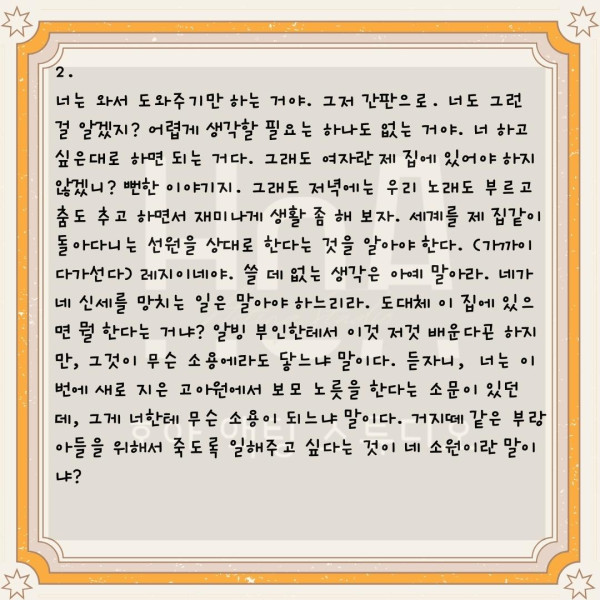 2.
너는 와서 도와주기만 하는 거야. 그저 간판으로. 너도 그런
걸 알겠지? 어렵게 생각할 필요는 하나도 없는 거야. 너 하고
싶은대로 하면 되는 거다. 그래도 여자란 제 집에 있어야 하지
않겠니? 뻔한 이야기지. 그래도 저녁에는 우리 노래도 부르고
춤도 추고 하면서 재미나게 생활 좀 해 보자. 세계를 제 집같이
돌아다니는 선원을 상대로 한다는 것을 알아야 한다. (가까이
다가선다) 레지이네야. 쓸 데 없는 생각은 아예 말아라. 네가
네 신세를 망치는 일은 말아야 하느리라. 도대체 이 집에 있으
면 뭘 한다는 거냐? 알빙 부인한테서 이것 저것 배운다곤 하지
만, 그것이 무슨 소용에라도 닿느냐 말이다. 듣자니, 너는 이
번에 새로 지은 고아원에서 보모 노릇을 한다는 소문이 있던
데, 그게 너한테 무슨 소용이 되느냐 말이다. 거지떼 같은 부랑
아들을 위해서 죽도록 일해주고 싶다는 것이 네 소원이란 말이
냐?
HnA
호아 액팅 스튜디오